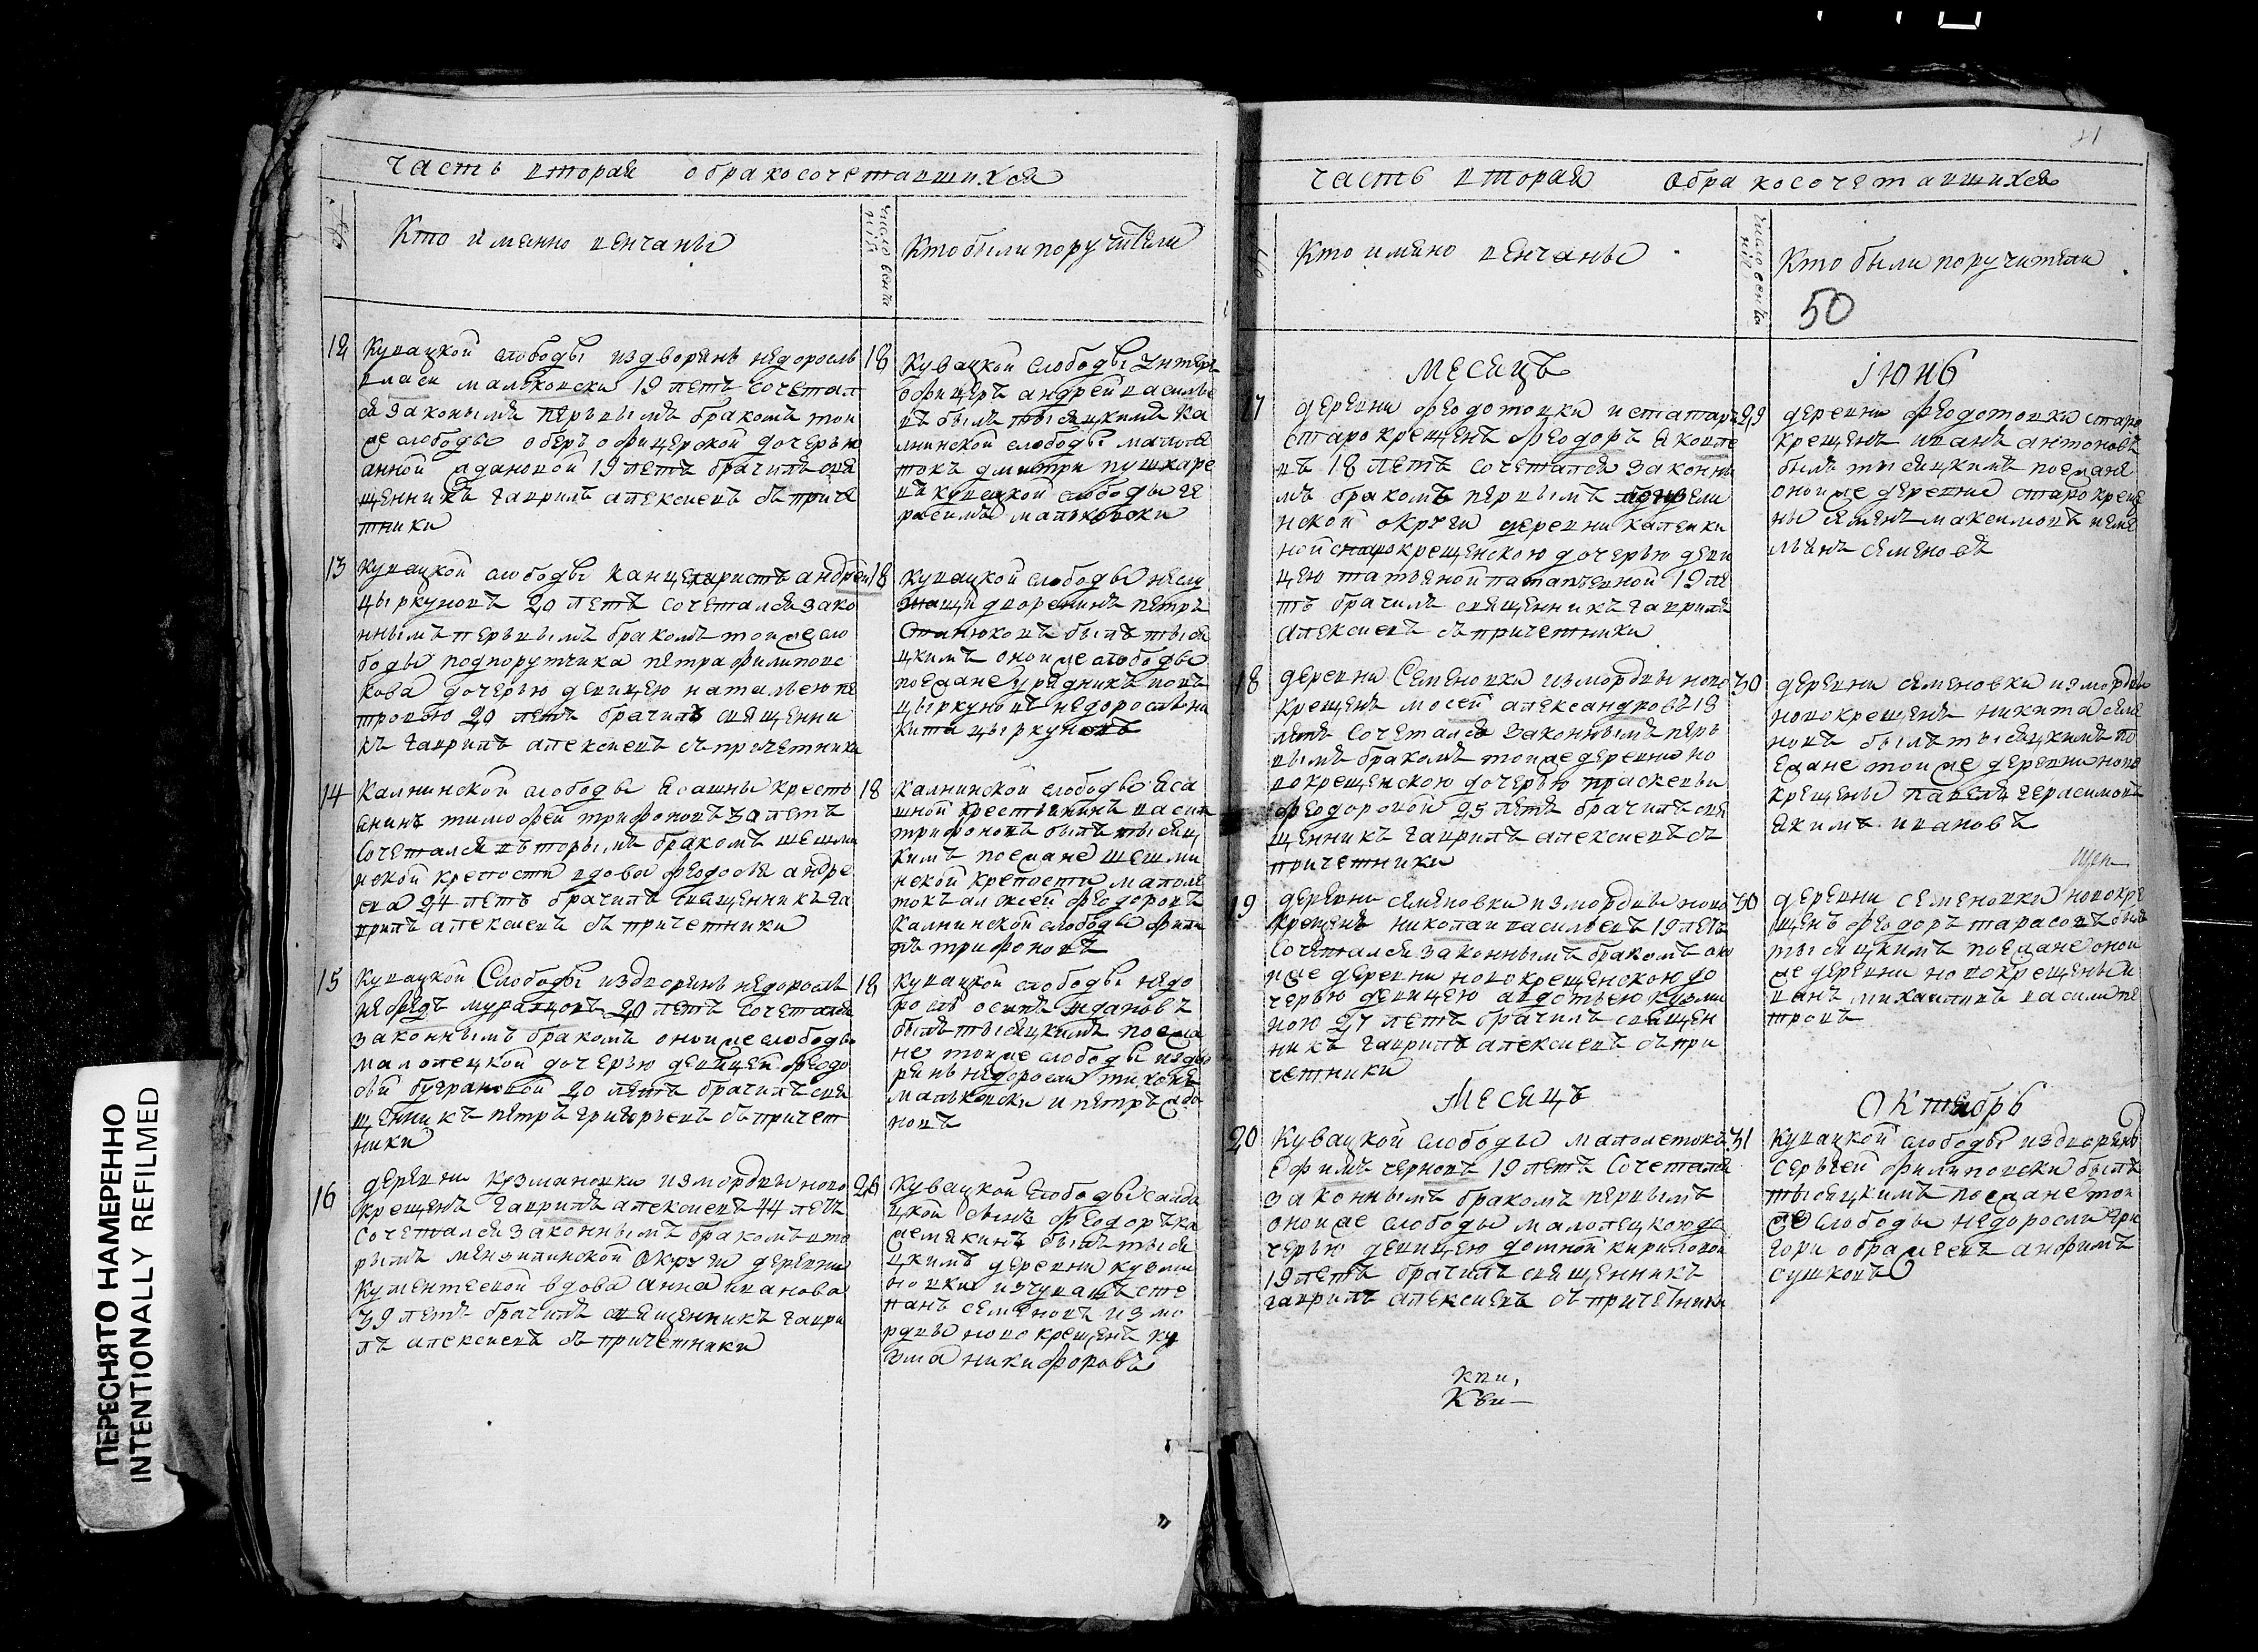 часть вторая обракосочетавшихся
№
Кто имянно венчаны
число венча
нiя
Кто были поручители
12
Кувацкой слободы издворянъ недоросль
власи мальковски 19 летъ сочетал
ся законымъ первымъ бракомъ тои
же слободы оберъ офицерской дочерью
анной 19 летъ брачилъ свя
щенникъ гаврилъ алексиевъ съ приче
тники
18
Кувацкой слободы унтеръ
офицеръ андрей василье
въ былъ тысяцкимъ ка
лнинской слободы малоле
токъ дмитри пушкаре
въ кувацкой слободы ге
расимъ мальковски
13
Кувацкой слободы канцеляристъ андрей
цыркуновъ 20 летъ сочетался зако
ннымъ первымъ бракомъ тои же сло
боды подпорутчика петра филиповс
кова дочерью девицею натальею пе
тровою 20 летъ брачилъ священни
къ гаврилъ алексиевъ съ причетники
18
кувацкой слободы неслу
жащи дворенинъ петръ
Станюковъ былъ тыся
цкимъ онои же слободы
поезжане урядникъ
цыркуновъ недоросль ни
кита цыркуновъ
14
Калнинской слободы ясашны кресть
енинъ тимофей трифоновъ летъ
сочетался вторымъ бракомъ шешми
нской крепости вдова феодосья андре
ева 24 летъ брачилъ священникъ га
врилъ алексиевъ съ причетники
18
Калнинской слободы яса
шной крестьянинъ васили
трифоновъ былъ тысяц
кимъ поезжане шешми
нской крепости малоле
токъ алексей феодоровъ
Калнинской слободы фили
пъ трифоновъ
15
Кувацкой Слободы издворянъ недоросль
муратовъ 20 летъ сочетался
законнымъ бракомъ онои же слободы
малолецкой дочерью девицей феодо
сьи 20 летъ брачилъ свя
щенникъ петръ григорьевъ съ причет
ники
18
Кувацкой слободы недо
росль осипъ ждановъ
былъ тысяцкимъ поезжа
не тои же слободы издво
рянъ недоросли тихонъ
мальковски и петръ жда
новъ
16
деревни кузмановки измордвы ново
крещенъ гаврилъ алексиевъ 44 летъ
сочетался законнымъ бракомъ вто
рымъ мензилинской округи деревни
Кументеевой вдова анна иванова
39 летъ брачилъ священникъ гаври
лъ алексиевъ съ причетники
26
Кувацкой слободы салда
цкой сынъ феодоръ ка
лемякинъ былъ тыся
цкимъ деревни кузма
новки изчувашъ сте
панъ семеновъ измо
рдвы ново крещенъ ку
зма никифоровъ
21
часть вторая обракосочетавшихся
Кто имяно венчаны
число венча
нiя
Кто были поручители
50
Месецъ
июнь
17
деревни феодотовки истатаръ
старокрещенъ феодоръ яковле
въ 18 летъ сочетался законны
мъ бракомъ первымъ
нской округи деревни калейки
ной старокрещенскою дочерью деви
цею татьяной 19 ле
тъ брачилъ священникъ гаврилъ
алексиевъ съ причетники
29
деревни феодотовки старо
крещенъ иванъ антоновъ
былъ тысяцкимъ поезжане
онои же деревни старокреще
ны семенъ максимовъ и еме
льянъ семеновъ
18
деревни Семеновки измордвы ново
крещенъ мосей александровъ 18
летъ сочетался законнымъ перь
вымъ бракомъ тои же деревни но
вокрещенскою дочерью прасковьи
феодоровой 25 летъ брачилъ свя
щенникъ гаврилъ алексиевъ съ
причетники
30
деревни семеновки измордвы
новокрещенъ никита семе
новъ былъ тысяцкимъ по
езжане тои же деревни ново
крещены павелъ герасимовъ
якимъ ивановъ
19
деревни семеновки измордвы ново
крещенъ николаи васильевъ 19 летъ
сочетался законнымъ бракомъ оно
и же деревни новокрещенскою до
черью девицею авдотьею кузми
ною 27 летъ брачилъ священ
никъ гаврилъ алексиевъ съ при
четники
30
деревни семеновки новокре
щенъ феодоръ тарасовъ былъ
тысяцкимъ поезжане онои
же деревни новокрещены и
ванъ михаиловъ васили пе
тровъ
Месецъ
октябрь
20
Кувацкой слободы малолетокъ
ефимъ черновъ 19 летъ сочетался
законнымъ бракомъ первымъ
онои же слободы малолецкою до
черью девицею домной кириловой
19 летъ брачилъ священникъ
гаврилъ алексиевъ съ причетники
31
Кувацкой слободы издворянъ
сергей филиповски былъ
тысяцкимъ поезжане тои
же слободы недоросли гри
гори анфимъ
сушковъ